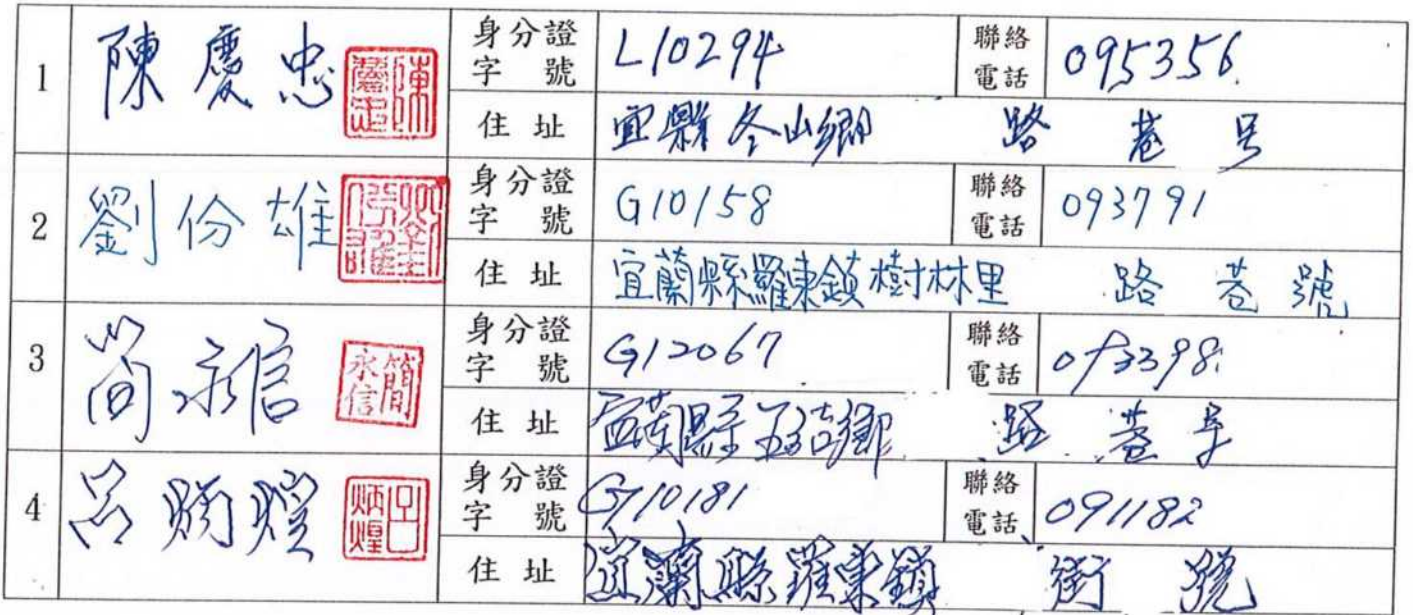 1 陳慶忠 陳慶忠 身分證字號 L10294 聯絡電話 095356
住址 宜縣冬山鄉 路 巷 号
2 劉份雄 劉份雄 身分證字號 G10158 聯絡電話 093791
住址 宜蘭縣羅東鎮樹林里 路 巷 號
3 简永信 簡永信 身分證字號 G12067 聯絡電話 093398
住址 宜蘭縣五結鄉 路 巷 号
4 呂炳煌 呂炳煌 身分證字號 G10181 聯絡電話 091182
住址 宜蘭縣羅東鎮 街 號